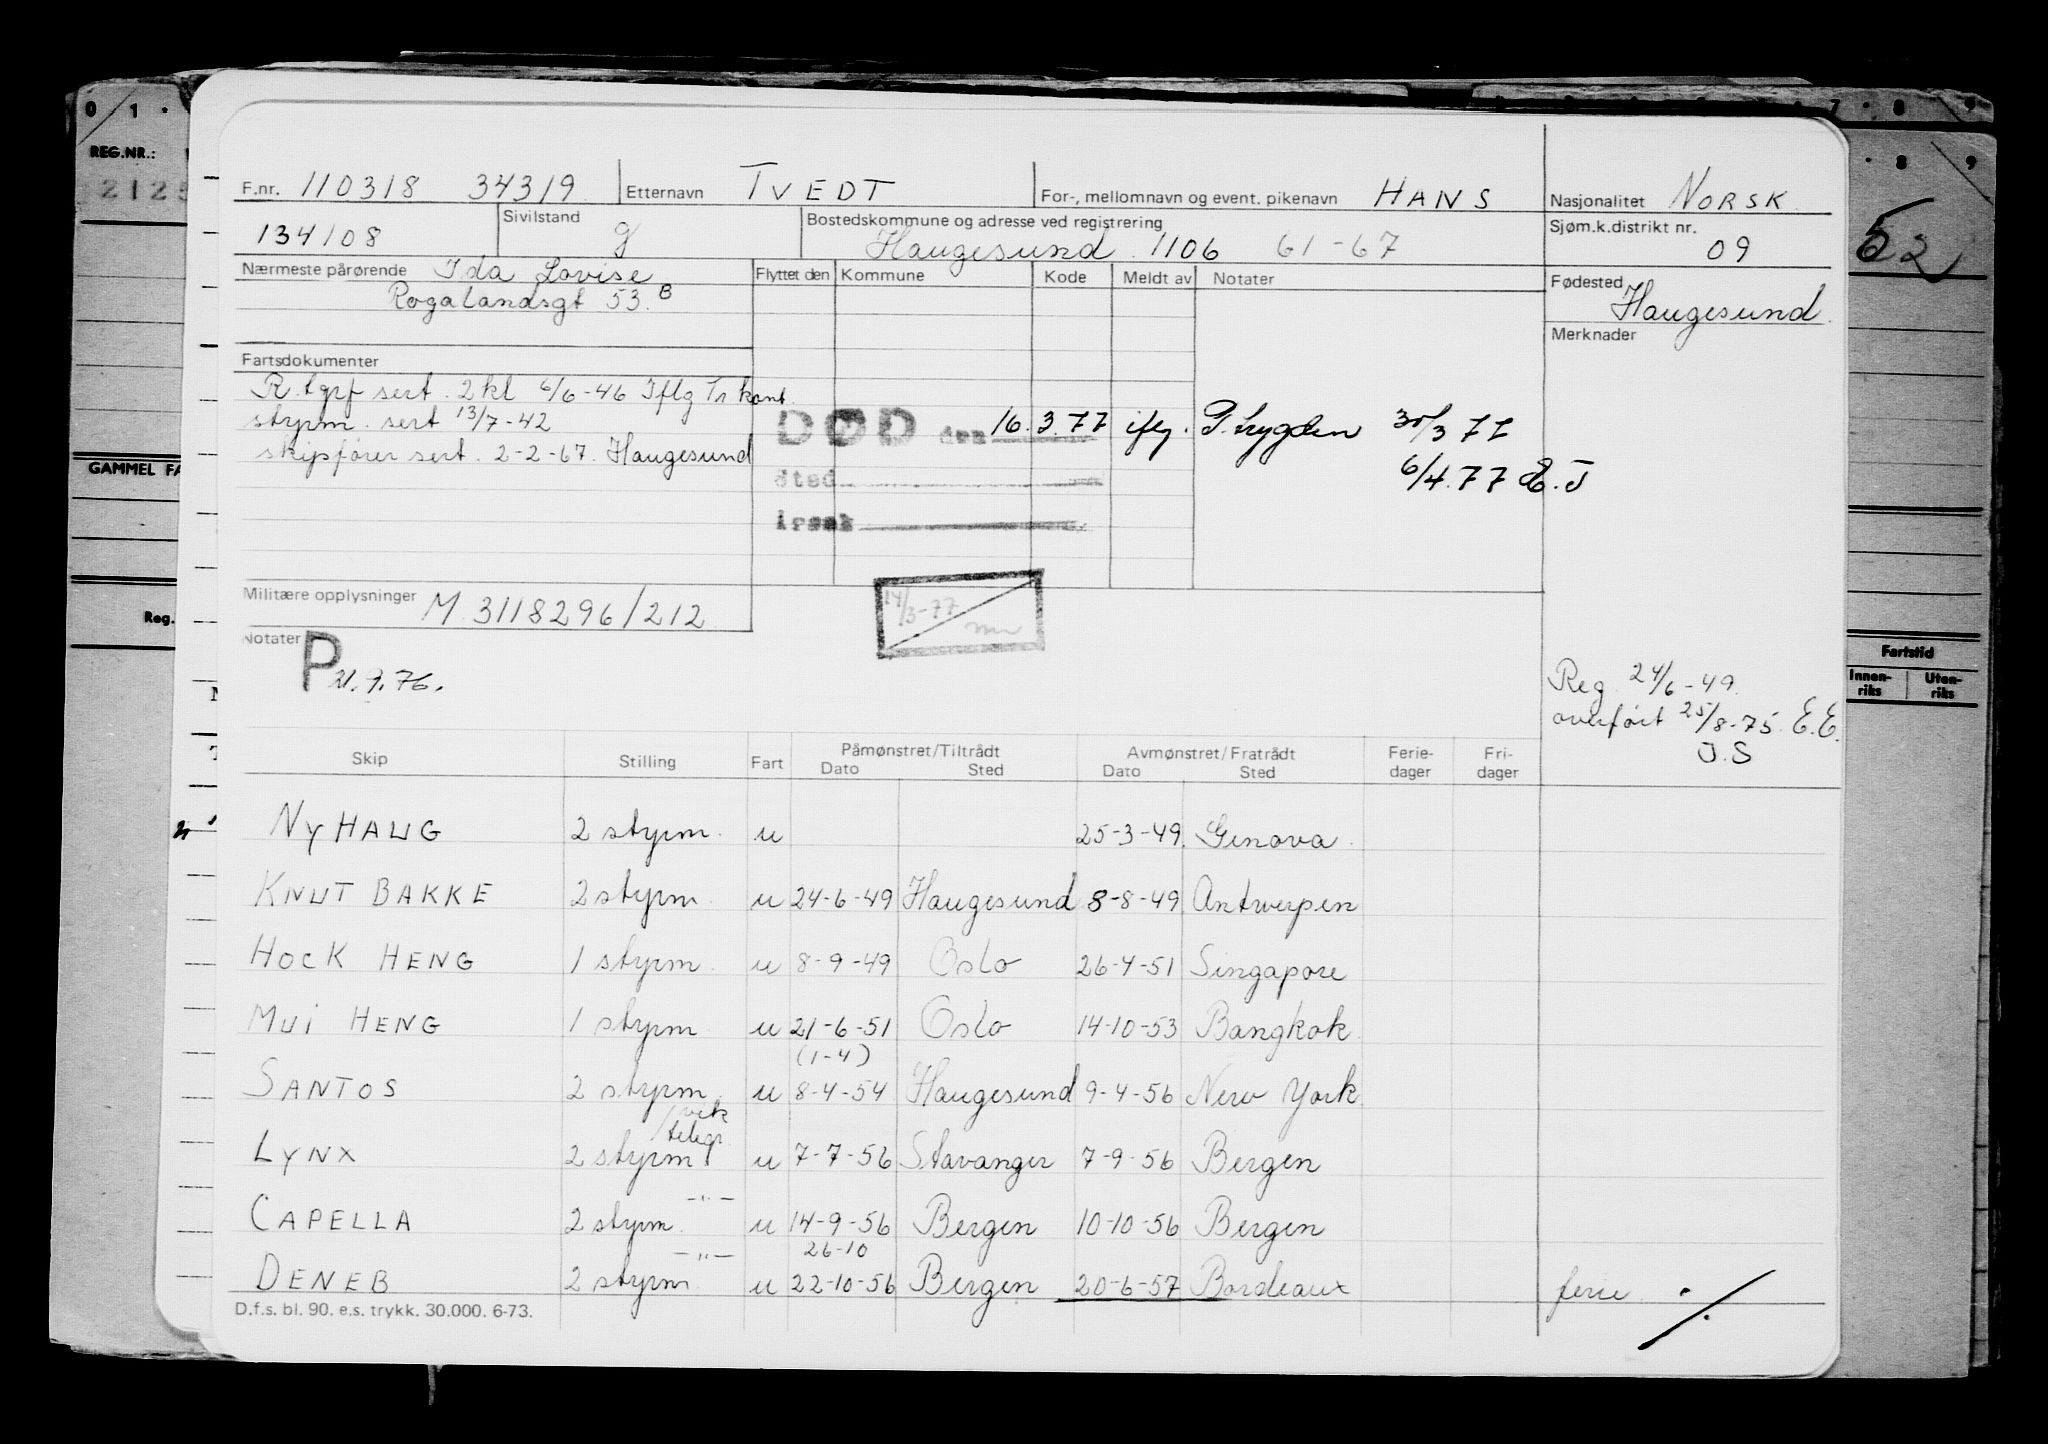 0 / 1 ·
7 · 8 9
REG.NR.:
2125
· 8 9
52
GAMMEL FA
Reg.
Fartstid
Innen-riks Uten-riks
F.nr. 110318 34319 Etternavn TVEDT For-, mellomnavn og event. pikenavn HANS Nasjonalitet NORSK
134108 Sivilstand g Bostedskommune og adresse ved registrering Sjøm.k.distrikt nr.
Haugesund 1106 61-67 09
Nærmeste pårørende Ida Lovise Flyttet den Kommune Kode Meldt av Notater Fødested
Rogalandsgt 53.B Haugesund
Merknader
Fartsdokumenter
R.tgrf sert. 2kl 6/6-46 Iflg Tr kont.
styrm. sert 13/7-42 DØD den 16.3.77 ifly. P.trygden 30/3 77
skipsfører sert. 2-2-67. Haugesund 6/4.77 E.J
sted
årsak
Militære opplysninger M.3118296/212
14/3-77
Notater P 21.9.76.
Reg. 24/6-49.
overført 25/8-75. E.E.
J.S
Skip Stilling Fart Påmønstret/Tiltrådt Avmønstret/Fratrådt Ferie-dager Fri-dager
Dato Sted Dato Sted
NYHAUG 2 styrm. u 25-3-49. Genova
KNUT BAKKE 2 styrm. u 24-6-49 Haugesund 8-8-49 Antwerpen
HOCK HENG 1 styrm. u 8-9-49 Oslo 26-4-51 Singapore
MUI HENG 1 styrm u 21-6-51 Oslo 14-10-53 Bangkok
(1-4)
SANTOS 2 styrm. u 8-4-54 Haugesund 9-4-56 New York.
/vik
telegr.
LYNX 2 styrm u 7-7-56 Stavanger 7-9-56 Bergen
-"-
CAPELLA 2 styrm. u 14-9-56 Bergen 10-10-56 Bergen
-"- 26-10
DENEB 2 styrm. u 22-10-56 Bergen 20-6-57 Bordeaux ferie ./.
D.f.s. bl. 90. e.s. trykk. 30.000. 6-73.